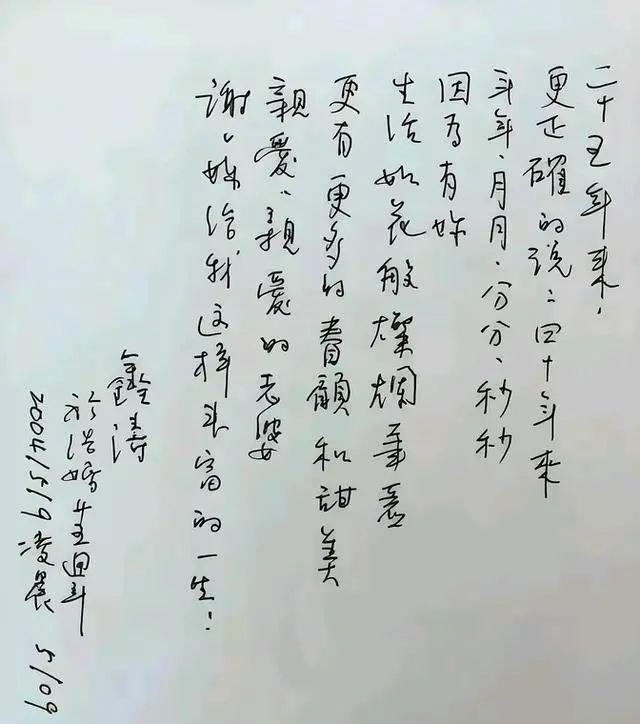 二十五年來，
更正確的說：四十年來
年年、月月、分分、秒秒
因為有妳
生活如花般燦爛
更有更多的眷顧和甜美
親愛、親愛的老婆
謝謝妳給我這樣丰富的一生！
鑫濤
於結婚廿五週年
2004/5/9凌晨 5/09